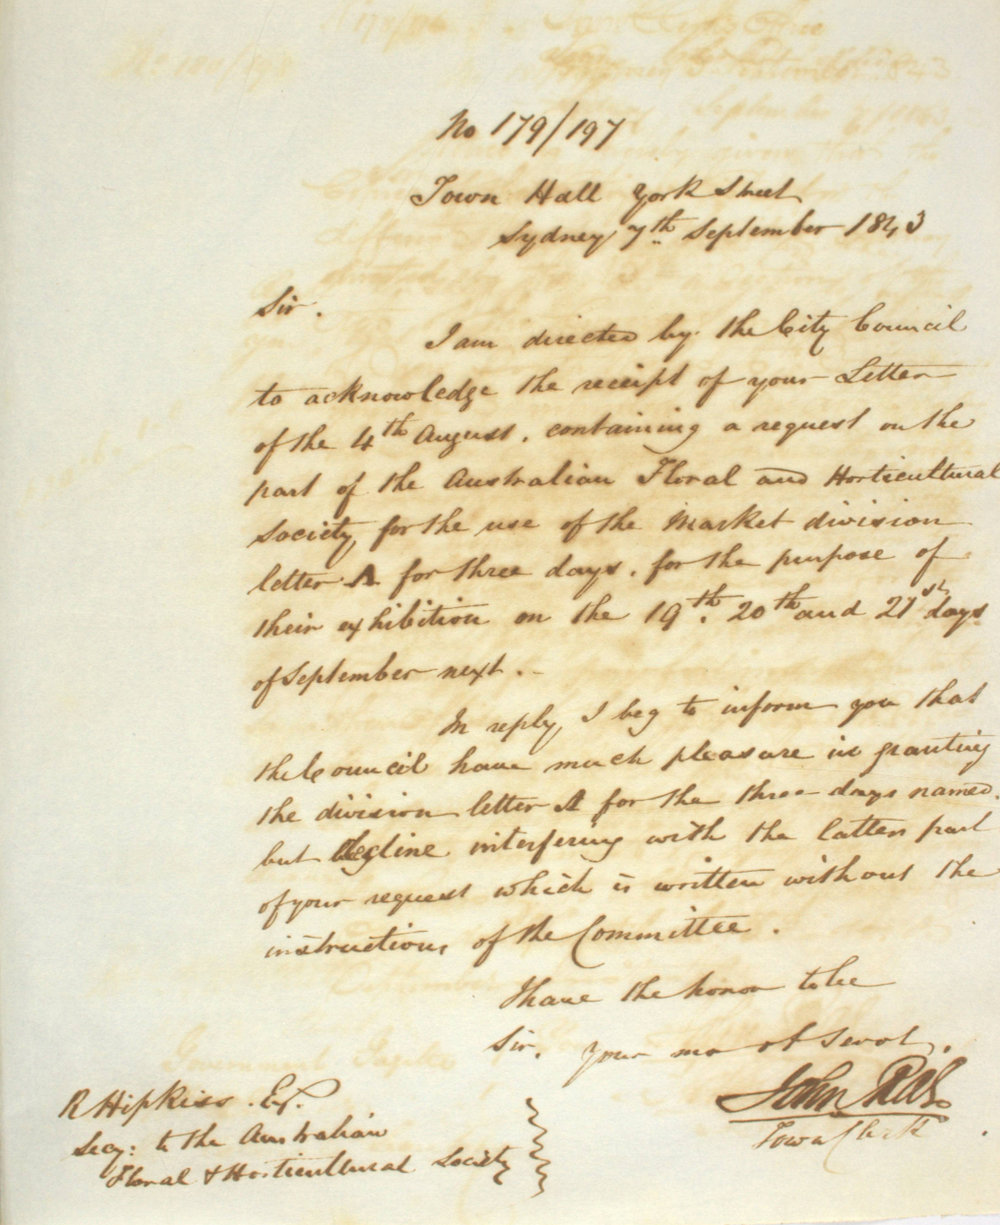 No 179/197
Town Hall York Street
Sydney 7th September 1843
Sir.
I am directed by the City Council
to acknowledge the receipt of your Letter
of the 4th August, containing a request on the
part of the Australian Floral and Horticultural
Society, for the use of the Market division
letter A for three days, for the purpose of
their exhibition on the 19th, 20th and 21st days
of September next.
In reply, I beg to inform you that
the Council have much pleasure in granting
the division letter A for the three days named.
but decline interfering with the latter part
of your request which is written without the
instructions of the Committee.
I have the honor to be
Sir,
Your mo ob Servt,
John Rae
Town Clerk
R Hipkiss. Esq.
Secy: to the Australian
Floral & Horticultural Society